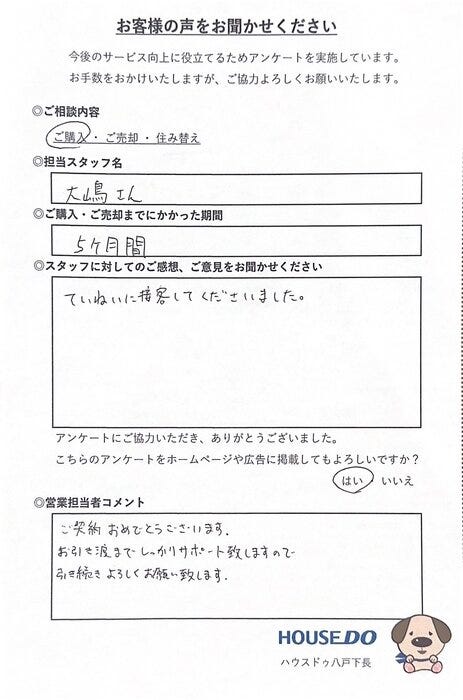 お客様の声をお聞かせください
今後のサービス向上に役立てるためアンケートを実施しています。
お手数をおかけいたしますが、ご協力よろしくお願いいたします。
◎ご相談内容
ご購入・ご売却・住み替え
◎担当スタッフ名
大嶋さん
◎ご購入・ご売却までにかかった期間
5ヶ月間
◎スタッフに対してのご感想、ご意見をお聞かせください
ていねいに接客してくださいました。
アンケートにご協力いただき、ありがとうございました。
こちらのアンケートをホームページや広告に掲載してもよろしいですか？
はい・いいえ
◎営業担当者コメント
ご契約おめでとうございます.
お引き渡しまでしっかりサポート致しますので
引き続きよろしくお願い致します.
HOUSEDO
ハウスドゥ八戸下長